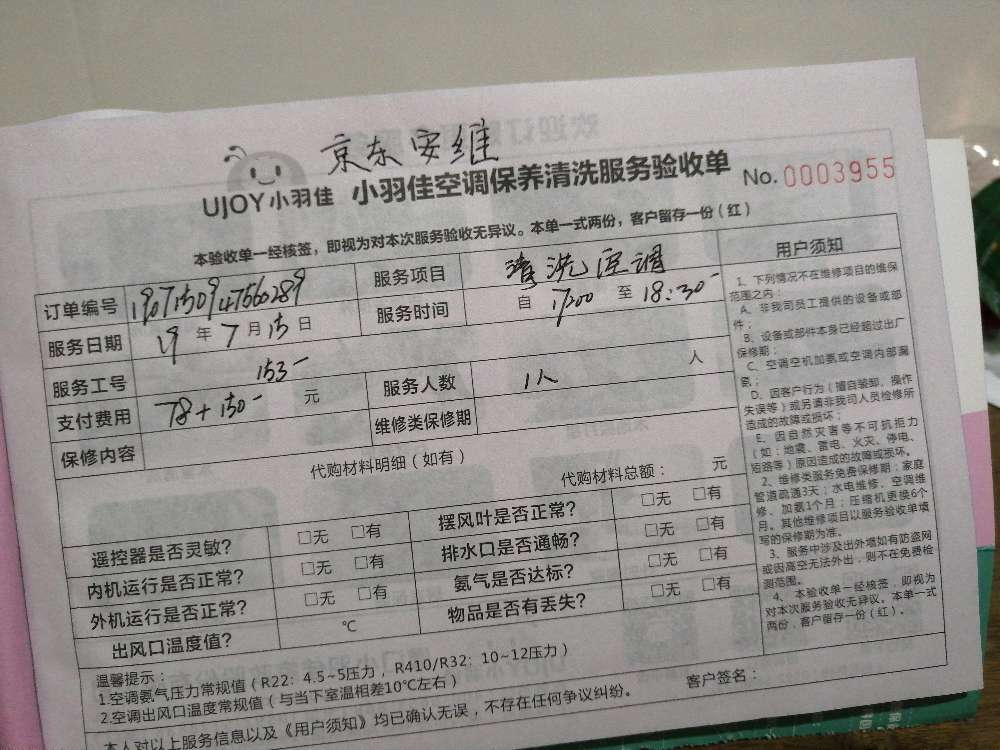 京东安维
UJOY小羽佳 小羽佳空调保养清洗服务验收单 No.0003955
本验收单一经核签，即视为对本次服务验收无异议。本单一式两份，客户留存一份（红）
订单编号 1907150947560289 服务项目 清洗空调
服务日期 19 年 7 月 15 日 服务时间 自 17:00 至 18:30
服务工号 153 服务人数 1人 人
支付费用 78+150 元 维修类保修期
保修内容
代购材料明细（如有） 代购材料总额： 元
遥控器是否灵敏？ □无 □有 摆风叶是否正常？ □无 □有
内机运行是否正常？ □无 □有 排水口是否通畅？ □无 □有
外机运行是否正常？ □无 □有 氨气是否达标？ □无 □有
出风口温度值？ ℃ 物品是否有丢失？ □无 □有
温馨提示：
1.空调氨气压力常规值（R22：4.5~5压力，R410/R32：10~12压力）
2.空调出风口温度常规值（与当下室温相差10℃左右）
本人对以上服务信息以及《用户须知》均已确认无误，不存在任何争议纠纷。
客户签名：
用户须知
1、下列情况不在维修项目的维保
范围之内：
A、非我司员工提供的设备或部
件；
B、设备或部件本身已经超过出厂
保修期；
C、空调空机加氨或空调内部漏
氨；
D、因客户行为（擅自装卸、操作
失误等）或另请非我司人员检修所
造成的故障或损坏；
E、因自然灾害等不可抗拒力
（如：地震、雷电、火灾、停电、
短路等）原因造成的故障或损坏。
2、维修类服务免费保修期：家庭
管道疏通3天；水电维修、空调维
修、加氨1个月；压缩机更换6个
月。其他维修项目以服务验收单填
写的保修期为准。
3、服务中涉及出外墙如有防盗网
或因高空无法外出，则不在免费检
测范围。
4、本验收单一经核签，即视为
对本次服务验收无异议。本单一式
两份，客户留存一份（红）。